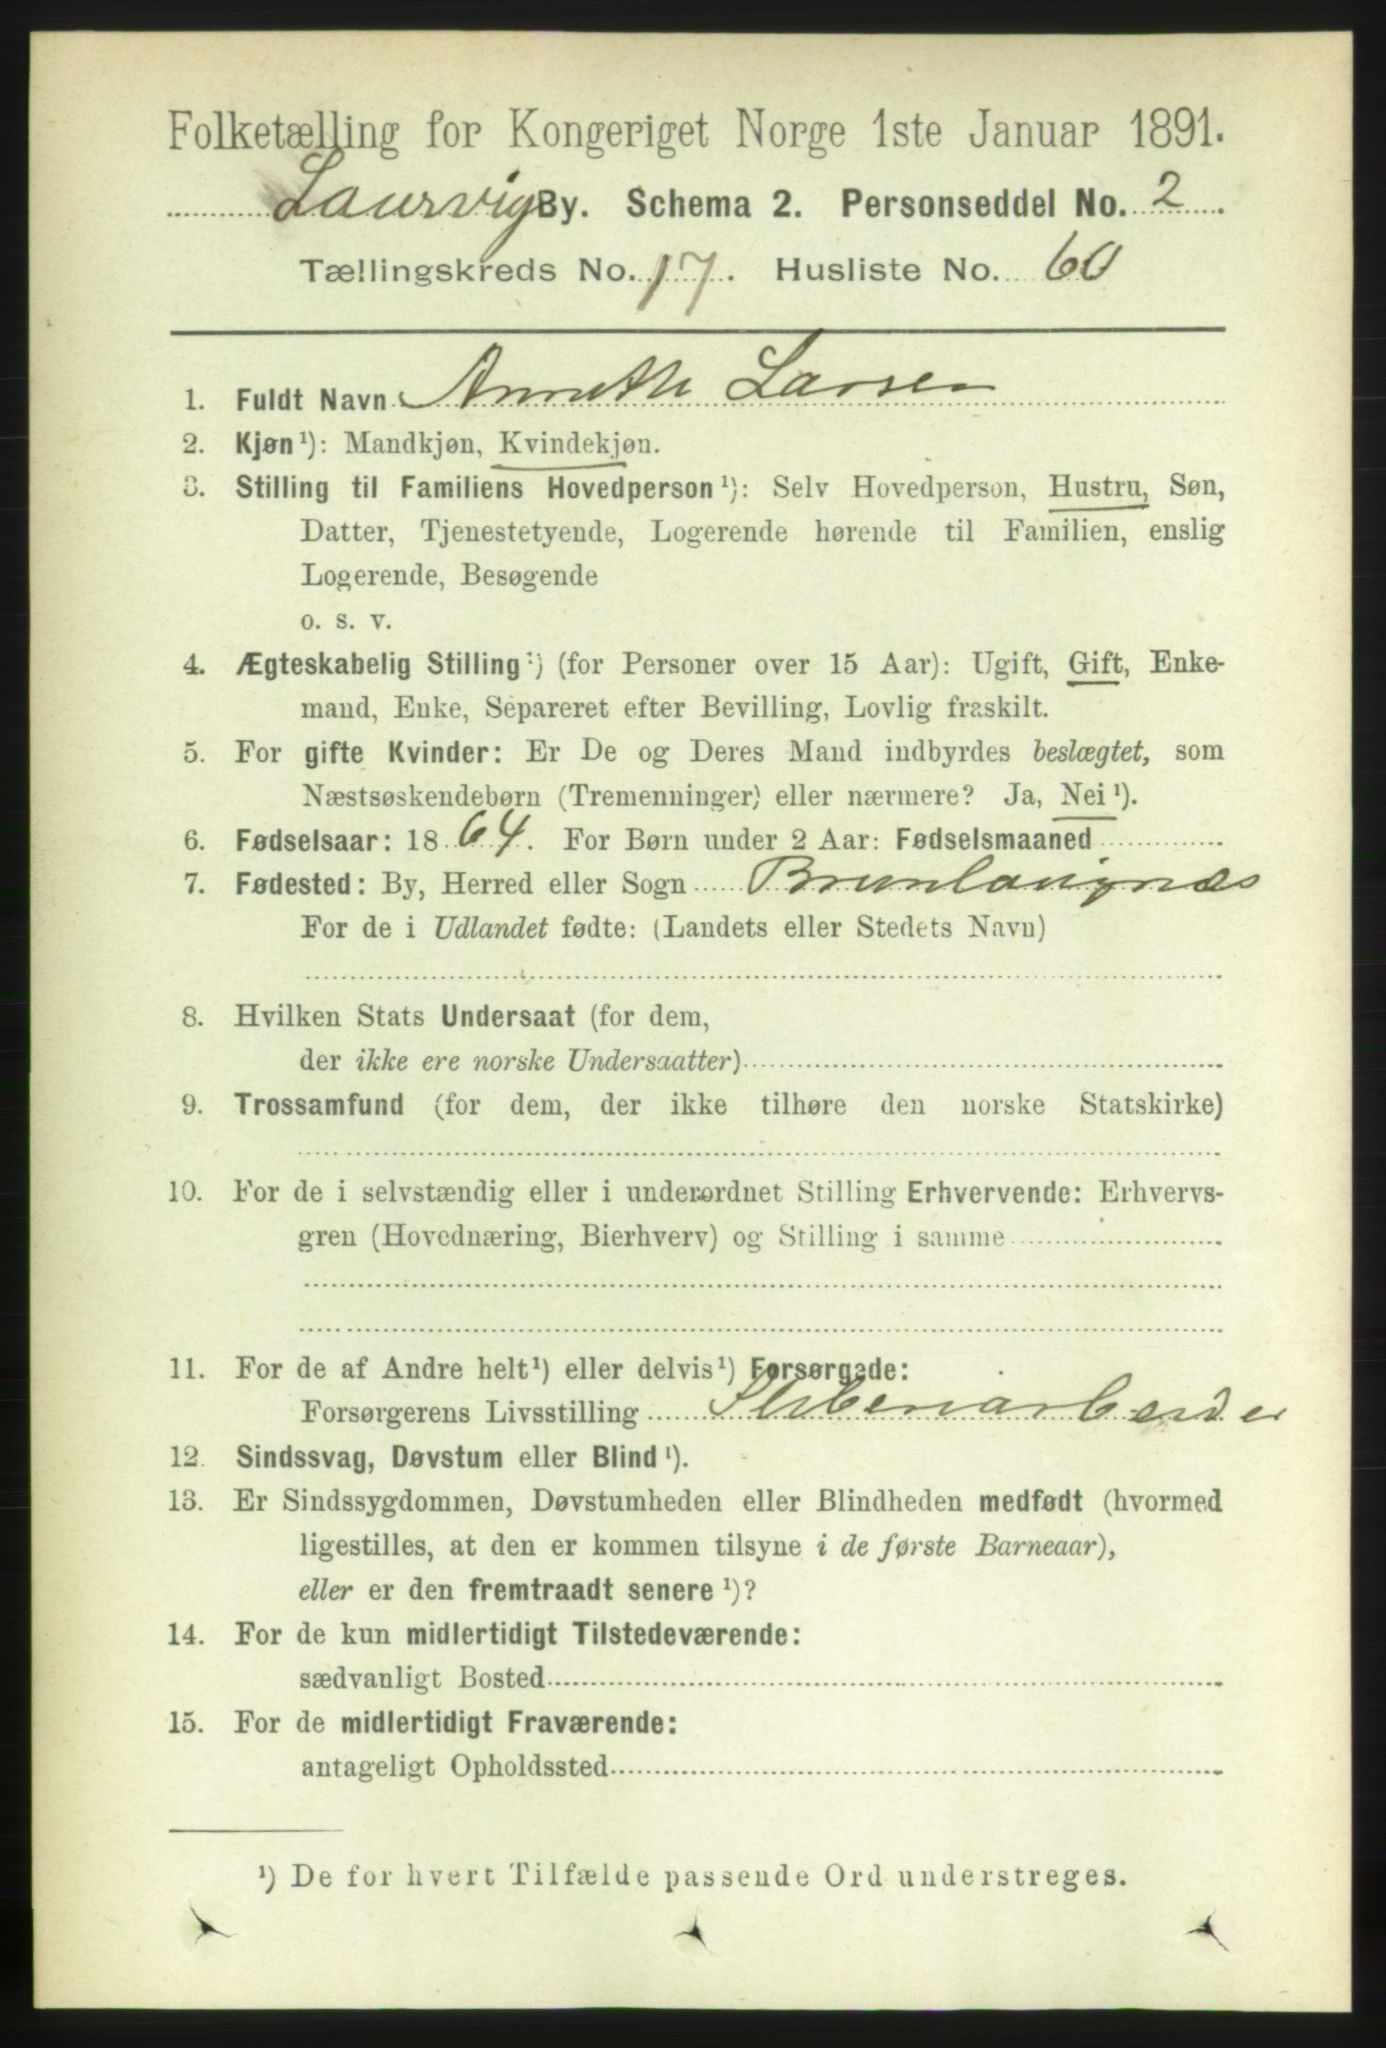 Folketælling for Kongeriget Norge 1ste Januar 1891.
Laurvig By. Schema 2. Personseddel No. 2.
Tællingskreds No. 17. Husliste No. 60
1. Fuldt Navn Anneth Larsen
2. Kjøn ¹): Mandkjøn, Kvindekjøn.
3. Stilling til Familiens Hovedperson ¹): Selv Hovedperson, Hustru, Søn,
Datter, Tjenestetyende, Logerende hørende til Familien, enslig
Logerende, Besøgende
o. s. v.
4. Ægteskabelig Stilling ¹) (for Personer over 15 Aar): Ugift, Gift, Enke-
mand, Enke, Separeret efter Bevilling, Lovlig fraskilt.
5. For gifte Kvinder: Er De og Deres Mand indbyrdes beslægtet, som
Næstsøskendebørn (Tremenninger) eller nærmere? Ja, Nei ¹).
6. Fødselsaar: 1864. For Børn under 2 Aar: Fødselsmaaned
7. Fødested: By, Herred eller Sogn Brunlaugnæs
For de i Udlandet fødte: (Landets eller Stedets Navn)
8. Hvilken Stats Undersaat (for dem,
der ikke ere norske Undersaatter)
9. Trossamfund (for dem, der ikke tilhøre den norske Statskirke)
10. For de i selvstændig eller i underordnet Stilling Erhvervende: Erhvervs-
gren (Hovednæring, Bierhverv) og Stilling i samme
11. For de af Andre helt ¹) eller delvis ¹) Forsørgede:
Forsørgerens Livsstilling
12. Sindssvag, Døvstum eller Blind ¹).
13. Er Sindssygdommen, Døvstumheden eller Blindheden medfødt (hvormed
ligestilles, at den er kommen tilsyne i de første Barneaar),
eller er den fremtraadt senere ¹)?
14. For de kun midlertidigt Tilstedeværende:
sædvanligt Bosted
15. For de midlertidigt Fraværende:
antageligt Opholdssted
¹) De for hvert Tilfælde passende Ord understreges.